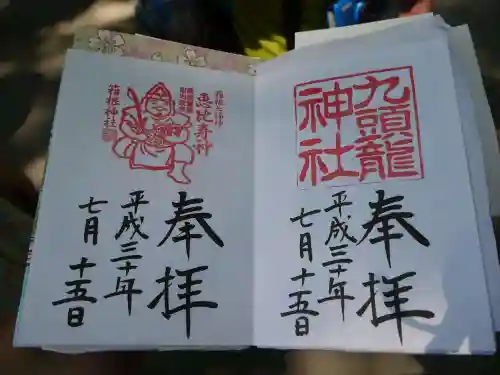 九頭龍
神社
奉拝
平成三十年
七月十五日
恵比寿神
箱根神社
奉拝
平成三十年
七月十五日